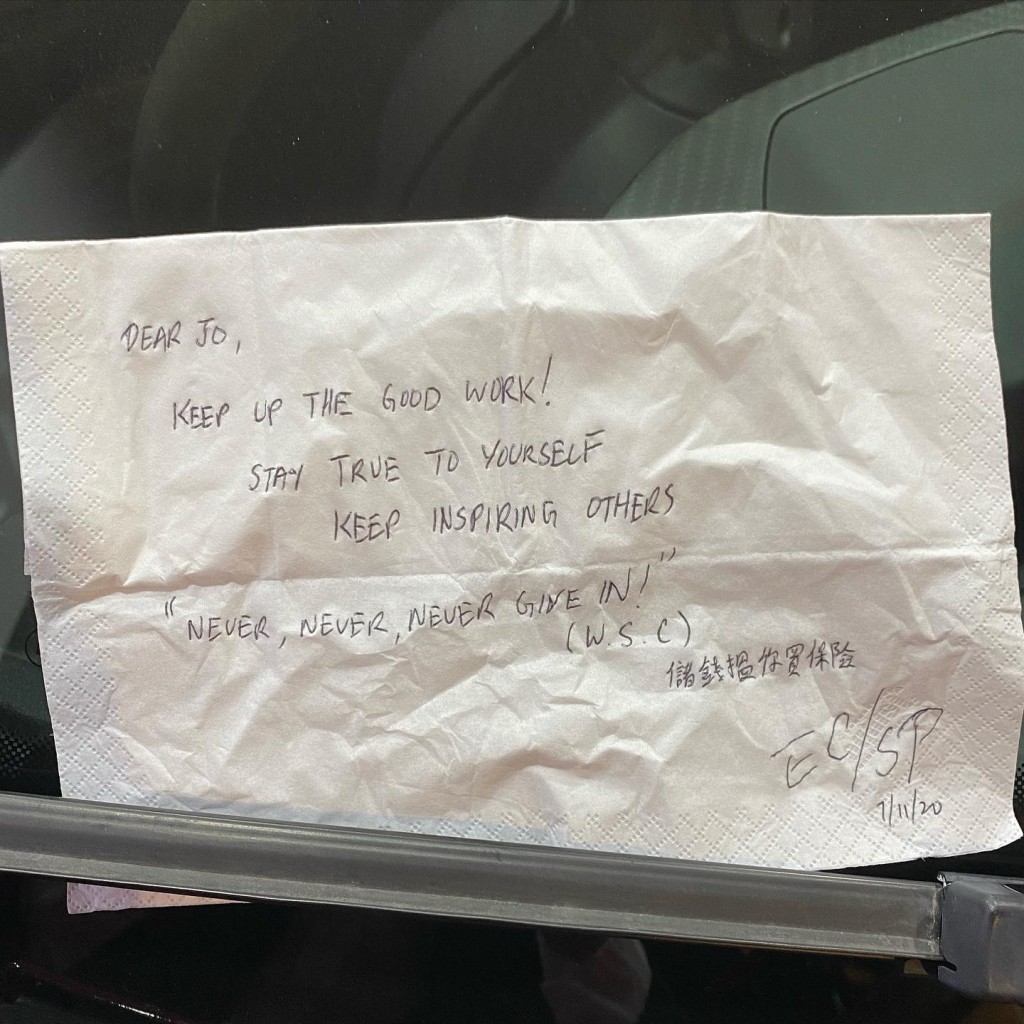 DEAR JO,
KEEP UP THE GOOD WORK!
STAY TRUE TO YOURSELF
KEEP INSPIRING OTHERS
"NEVER, NEVER, NEVER GIVE IN!"
(W.S.C)
儲錢搵你買保險
EC/SP
7/11/20